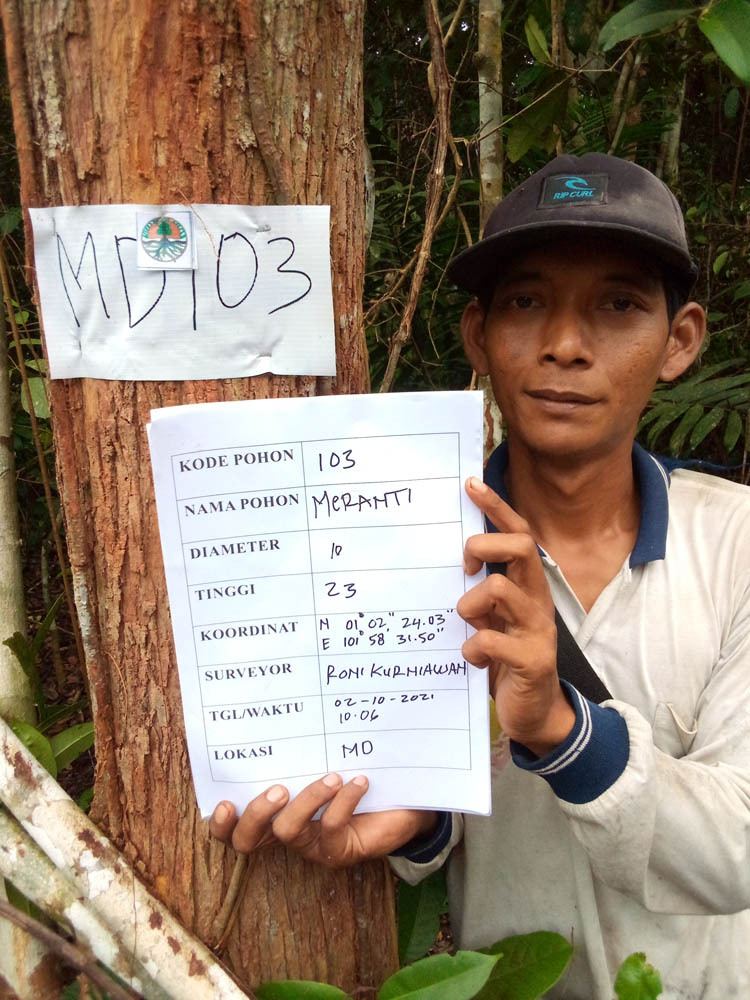 RIP CURL
MD103
KODE POHON 103
NAMA POHON MERANTI
DIAMETER 10
TINGGI 23
KOORDINAT N 01° 02' 24.03"
E 101° 58' 31.50"
SURVEYOR RONI KURNIAWAN
TGL/WAKTU 02-10-2021
10.06
LOKASI MD